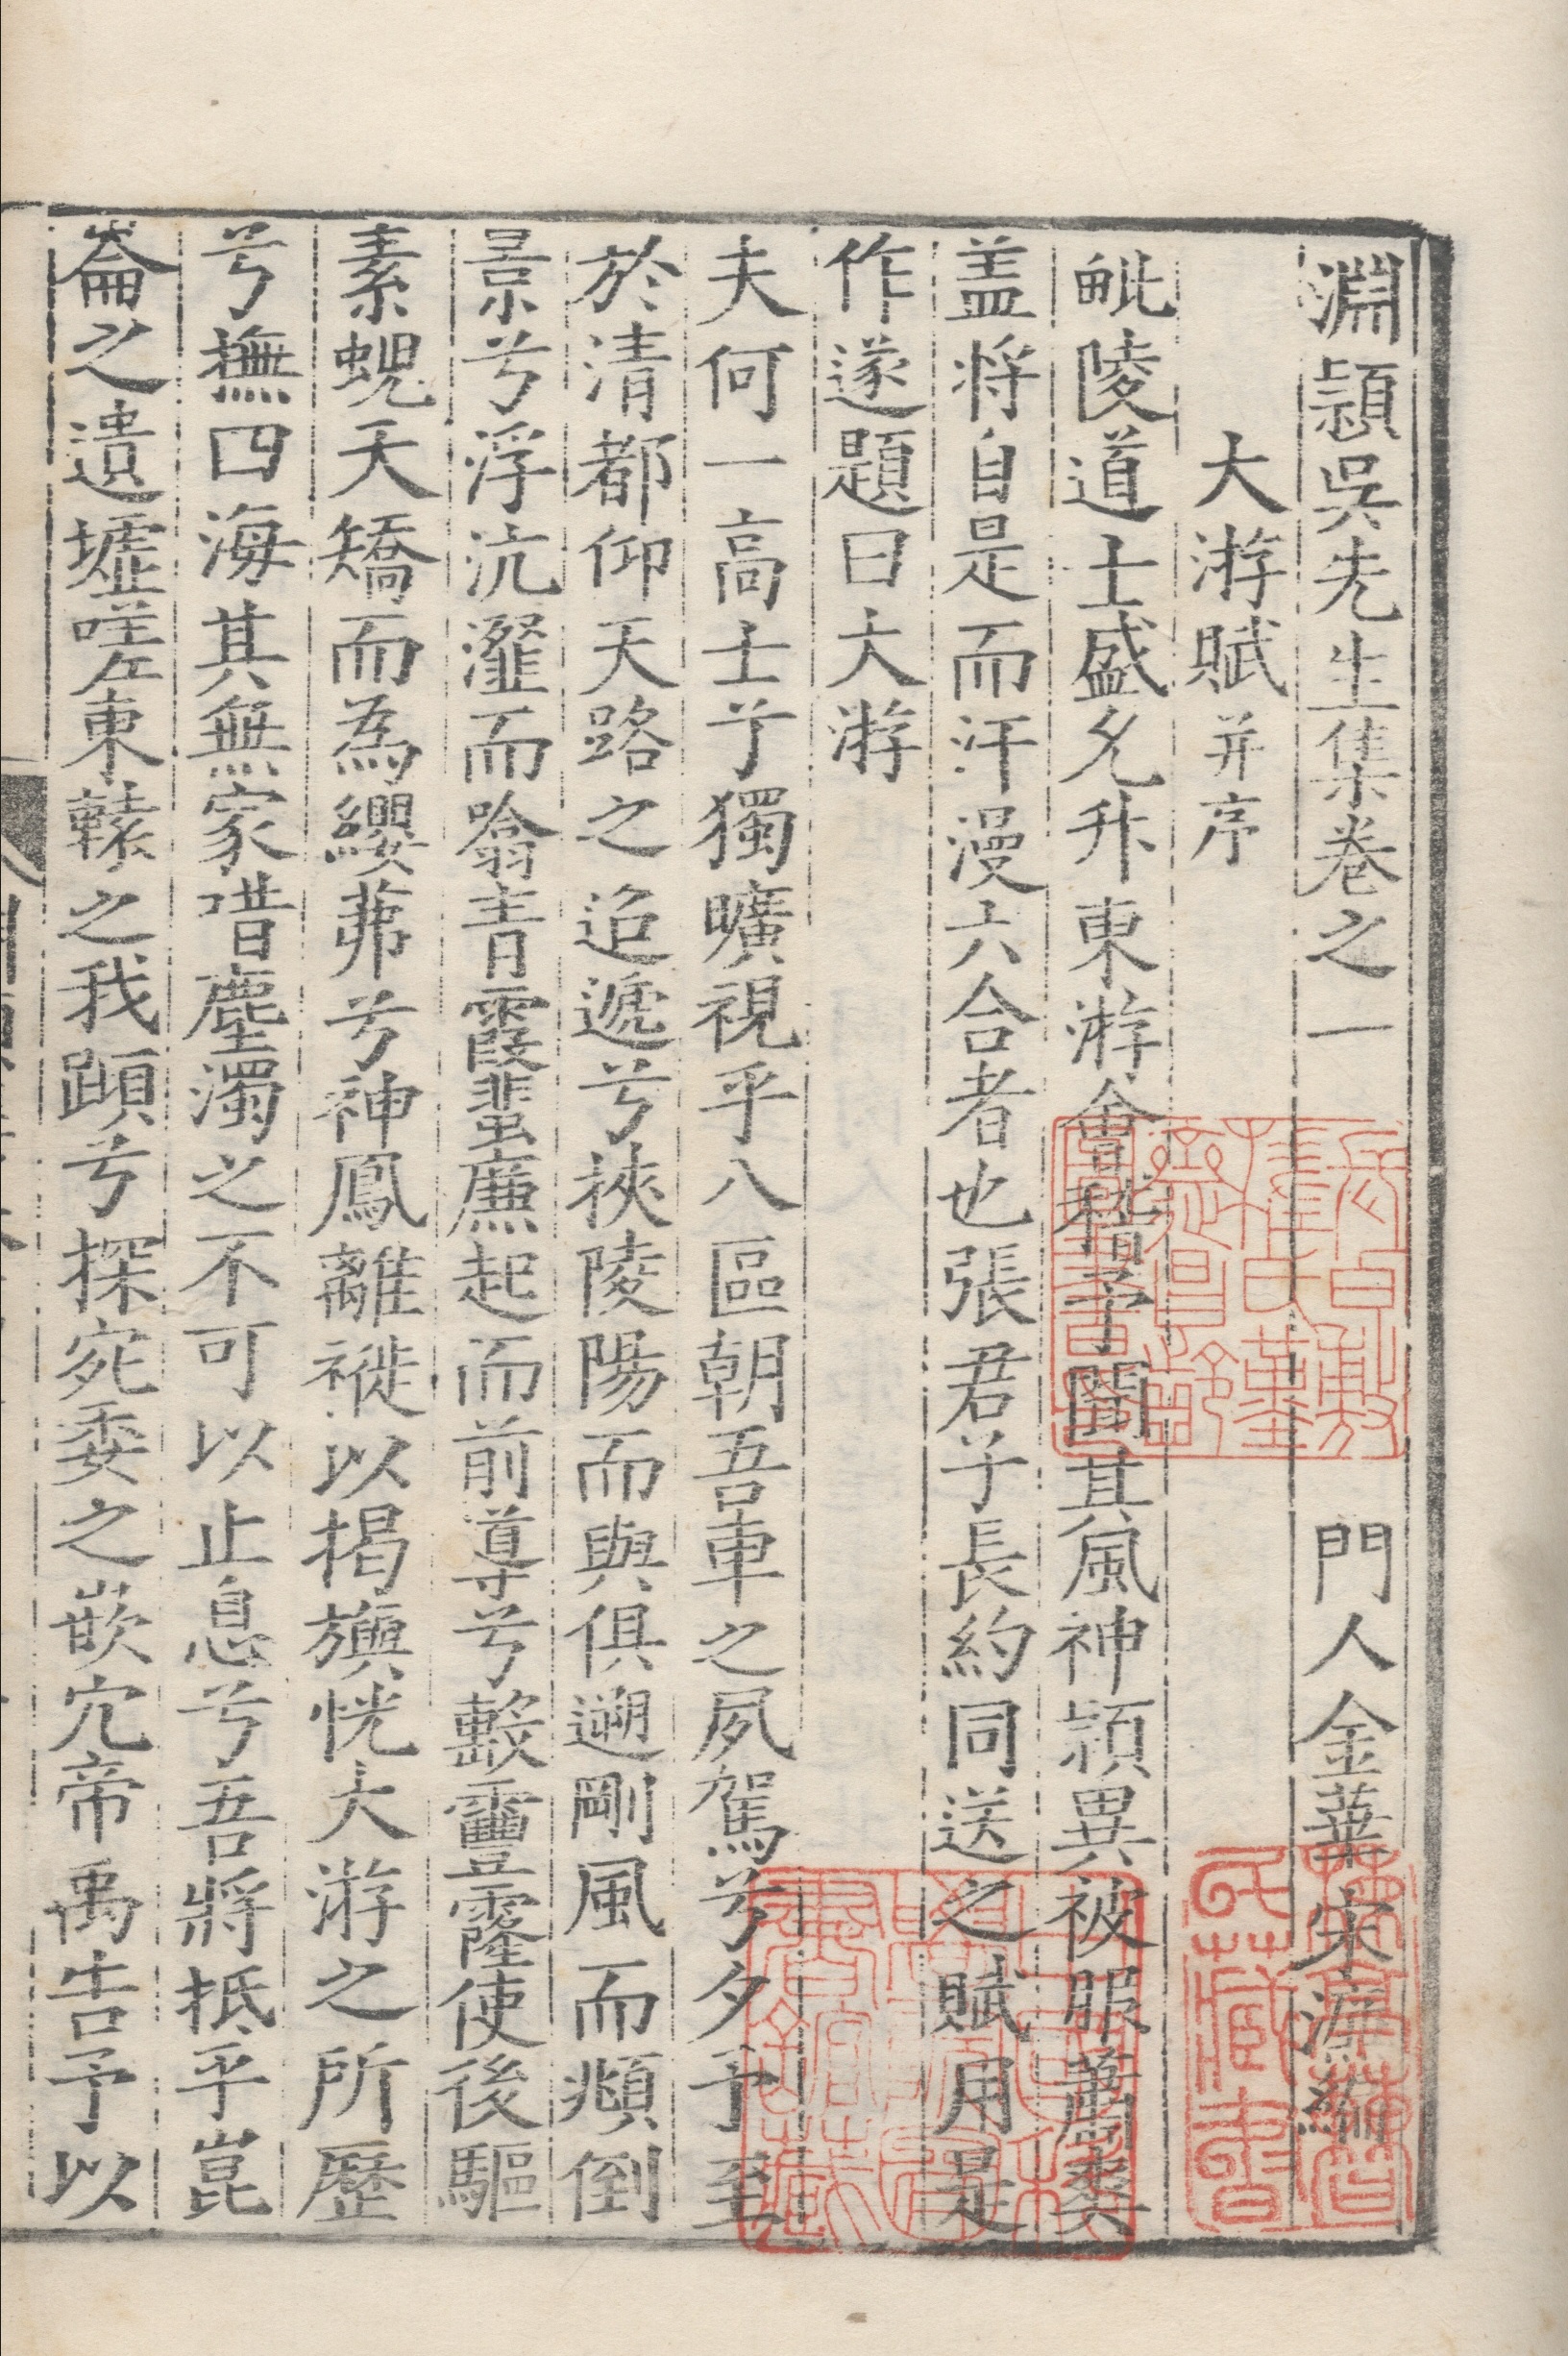 淵頴吳先生集卷之一　門人金華宋濂編
大游賦并序
毗陵道士盛允升東游會稽予聞其風神頴異被服蕭爽
盖將自是而汗漫六合者也張君子長約同送之賦用是
作遂題曰大游
夫何一高士兮獨曠視乎八區朝吾車之夙駕兮夕予至
於清都仰天路之迢遞兮挾陵陽而與俱遡剛風而頫倒
景兮浮沆瀣而噏青霞蜚廉起而前導兮繫靊霳使後驅
素蜺夭矯而為纓茀兮神鳳離褷以揭旟恍大游之所歷
兮撫四海其無家唶塵濁之不可以止息兮吾將抵乎崑
崙之遺墟嗟東轅之我顗兮探宛委之嵌穴帝禹告予以